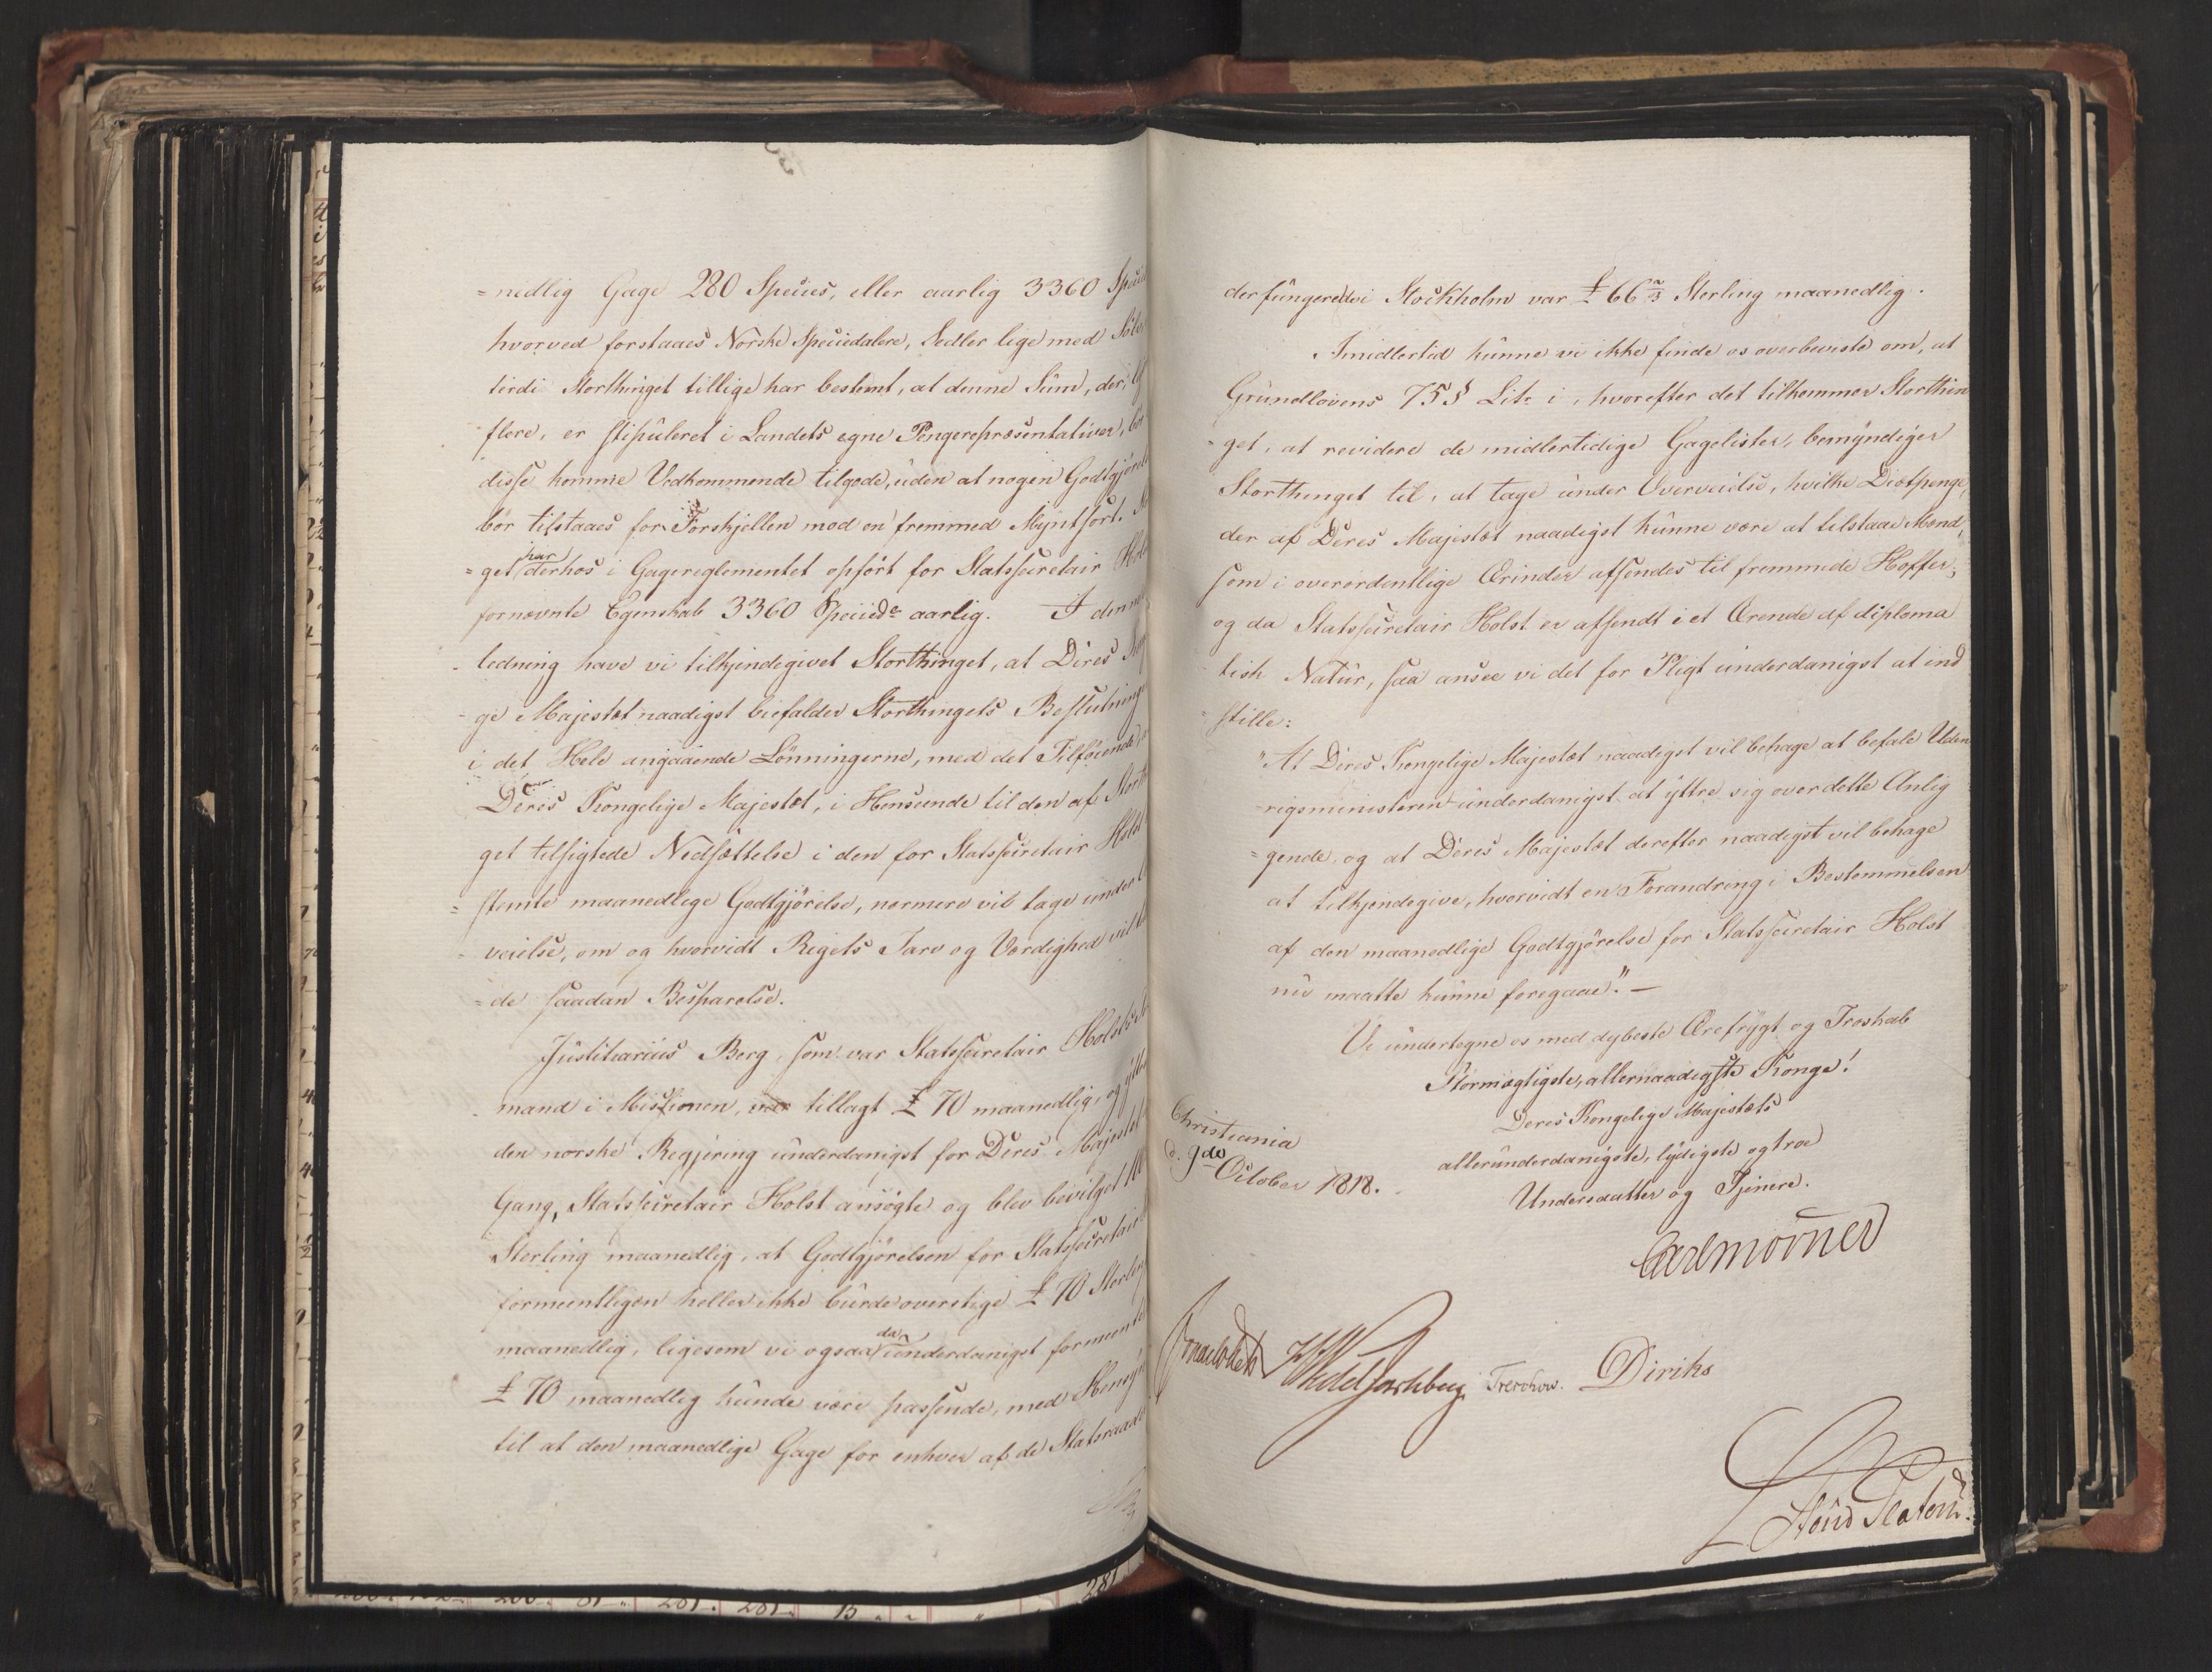 =nedlig Gage 280 Species, eller aarlig 3360
hvorved forstaaes Norske Speciedalere, Sedler lige med
terdi Storthinget tillige har bestemt, at denne Sum, der,
flere, er stipuleret i Landets egne Pengerepræsentativer,
disse komme Vedkommende tilgode, uden at nogen
bör tilstaaes for Forskjellen mod en fremmed Myntsort.
=get har derhos i Gagereglementet opfört for Statssecretair
fornævnte Egenskab 3360 Specied. aarlig. I
ledning have vi tilkjendegivet Storthinget, at Deres
ge Majestæt naadigst biefalder Storthingets
i det Hele angaaende Lönningerne, med det Tilföiende,
Deres Kongelige Majestæt, i Henseende til den af
get tilsigtede Nedsættelse i den for Statssecretair Holst
=stemte maanedlige Godtgjörelse, nærmere vil tage under
veielse, om og hvorvidt Rigets Tarv og Værdighed
=de saadan Besparelse.
Justitiarius Berg, som var Statssecretair
mand i Missionen, var tillagt £ 70 maanedlig, og
den norske Regjering underdanigst for Deres Majestæt
Gang, Statssecretair Holst ansögte og blev bevilget
Sterling maanedlig, at Godtgjörelsen for
formeentligen heller ikke burde overstige £ 70
maanedlig, ligesom vi ogsaa da underdanigst
£ 70 maanedlig kunde være passende, med
til at den maanedlige Gage for enhver af de
der fungerede i Stockholm var £ 66 2/3 Sterling maanedlig.
Imidlertid kunne vi ikke finde os overbeviste om, at
Grundlovens 75 § Litr i, hvorefter det tilkommer Storthin
=get, at revidere de midlertidige Gagelister, bemyndiger
Storthinget til, at tage under Overveielse, hvilke Diætpenge,
der af Deres Majestæt naadigst kunne være at tilstaae Mænd,
som i overordentlige Ærinder afsendes til fremmede Hoffer;
og da Statssecretair Holst er afsendt i et Ærende af diploma
tisk Natur, saa ansee vi det for Pligt underdanigst at ind
=stille:
"At Deres Kongelige Majestæt naadigst vil behage at befale Uden
rigsministeren underdanigst at yttre sig over dette Anlig
=gende, og at Deres Majestæt derefter naadigst vil behage
at tilkjendegive, hvorvidt en Forandring i Bestemmelsen
af den maanedlige Godtgjörelse for Statssecretair Holst
nu maatte kunne foregaae." —
Vi undertegne os med dybeste Ærefrygt og Troskab
Stormægtigste, allernaadigste Konge!
Deres Kongelige Majestæts
allerunderdanigste, lydigste og troe
Undersaatter og Tjenere.
Christiania
d. 9de October 1818.
Carl Mörner
Sommerhielm HWedelJarlsberg Treschow. Diriks